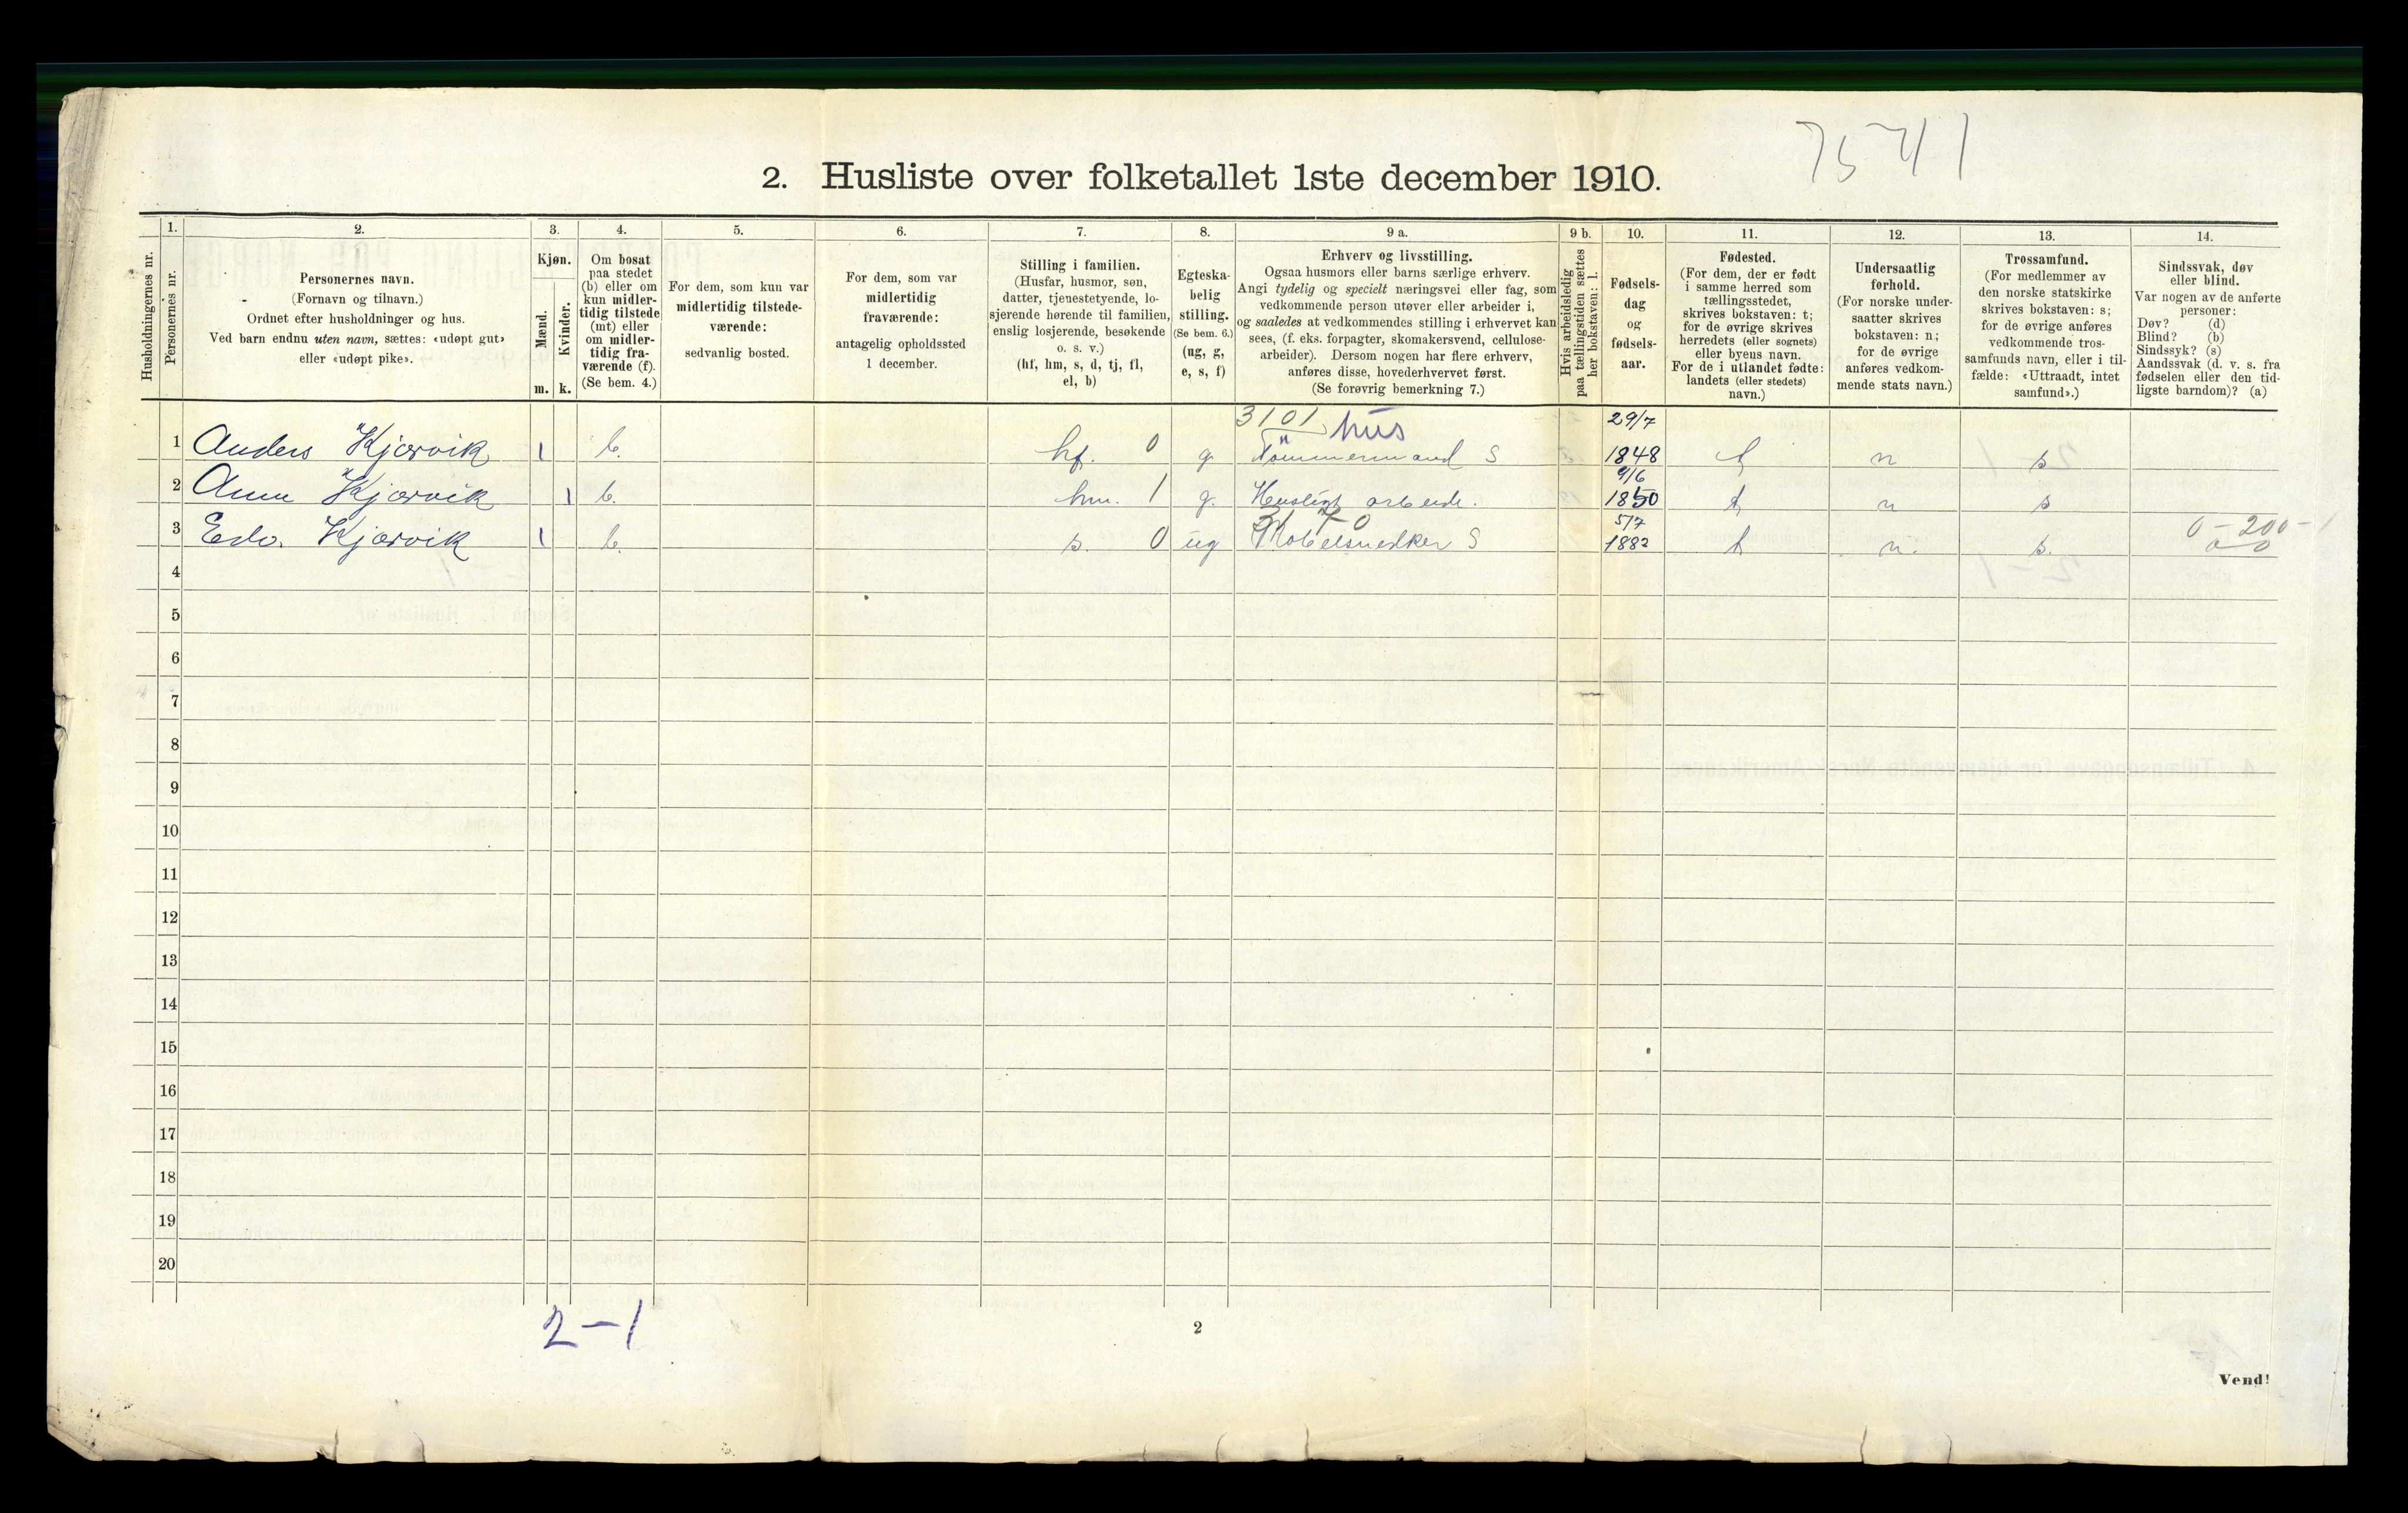 7541
2. Husliste over folketallet 1ste december 1910.
Husholdningernes nr.
1.
Personernes nr.
2.
Personernes navn.
(Fornavn og tilnavn.)
Ordnet efter husholdninger og hus.
Ved barn endnu uten navn, sættes: «udøpt gut»
eller «udøpt pike».
3.
Kjøn.
Mænd.
m.
Kvinder.
k.
4.
Om bosat
paa stedet
(b) eller om
kun midler-
tidig tilstede
(mt) eller
om midler-
tidig fra-
værende (f).
(Se bem. 4.)
5.
For dem, som kun var
midlertidig tilstede-
værende:
sedvanlig bosted.
6.
For dem, som var
midlertidig
fraværende:
antagelig opholdssted
1 december.
7.
Stilling i familien.
(Husfar, husmor, søn,
datter, tjenestetyende, lo-
sjerende hørende til familien,
enslig losjerende, besøkende
o. s. v.)
(hf, hm, s, d, tj, fl,
el, b)
8.
Egteska-
belig
stilling.
(Se bem. 6.)
(ug, g,
e, s, f)
9 a.
Erhverv og livsstilling.
Ogsaa husmors eller barns særlige erhverv.
Angi tydelig og specielt næringsvei eller fag, som
vedkommende person utøver eller arbeider i,
og saaledes at vedkommendes stilling i erhvervet kan
sees, (f. eks. forpagter, skomakersvend, cellulose-
arbeider). Dersom nogen har flere erhverv,
anføres disse, hovederhvervet først.
(Se forøvrig bemerkning 7.)
9 b.
Hvis arbeidsledig
paa tællingstiden sættes
her bokstaven: l.
10.
Fødsels-
dag
og
fødsels-
aar.
11.
Fødested.
(For dem, der er født
i samme herred som
tællingsstedet,
skrives bokstaven: t;
for de øvrige skrives
herredets (eller sognets)
eller byens navn.
For de i utlandet fødte:
landets (eller stedets)
navn.)
12.
Undersaatlig
forhold.
(For norske under-
saatter skrives
bokstaven: n;
for de øvrige
anføres vedkom-
mende stats navn.)
13.
Trossamfund.
(For medlemmer av
den norske statskirke
skrives bokstaven: s;
for de øvrige anføres
vedkommende tros-
samfunds navn, eller i til-
fælde: «Uttraadt, intet
samfund».)
14.
Sindssvak, døv
eller blind.
Var nogen av de anførte
personer:
Døv? (d)
Blind? (b)
Sindssyk? (s)
Aandssvak (d. v. s. fra
fødselen eller den tid-
ligste barndom)? (a)
3101 hus 29/7
1 Anders Kjærvik 1 b. hf. 0 g. Tömmermand S 1848 t n s
9/6
2 Ane Kjærvik 1 b. hm. 1 g. Husligt arbeide. 1850 t n s
5/7 0 - 200 - 1
3 Edv. Kjærvik 1 b. s. 0 ug Møbelsnedker S 1882 t n. s. 0 0
4
5
6
7
8
9
10
11
12
13
14
15
16
17
18
19
20
2-1
2
Vend!